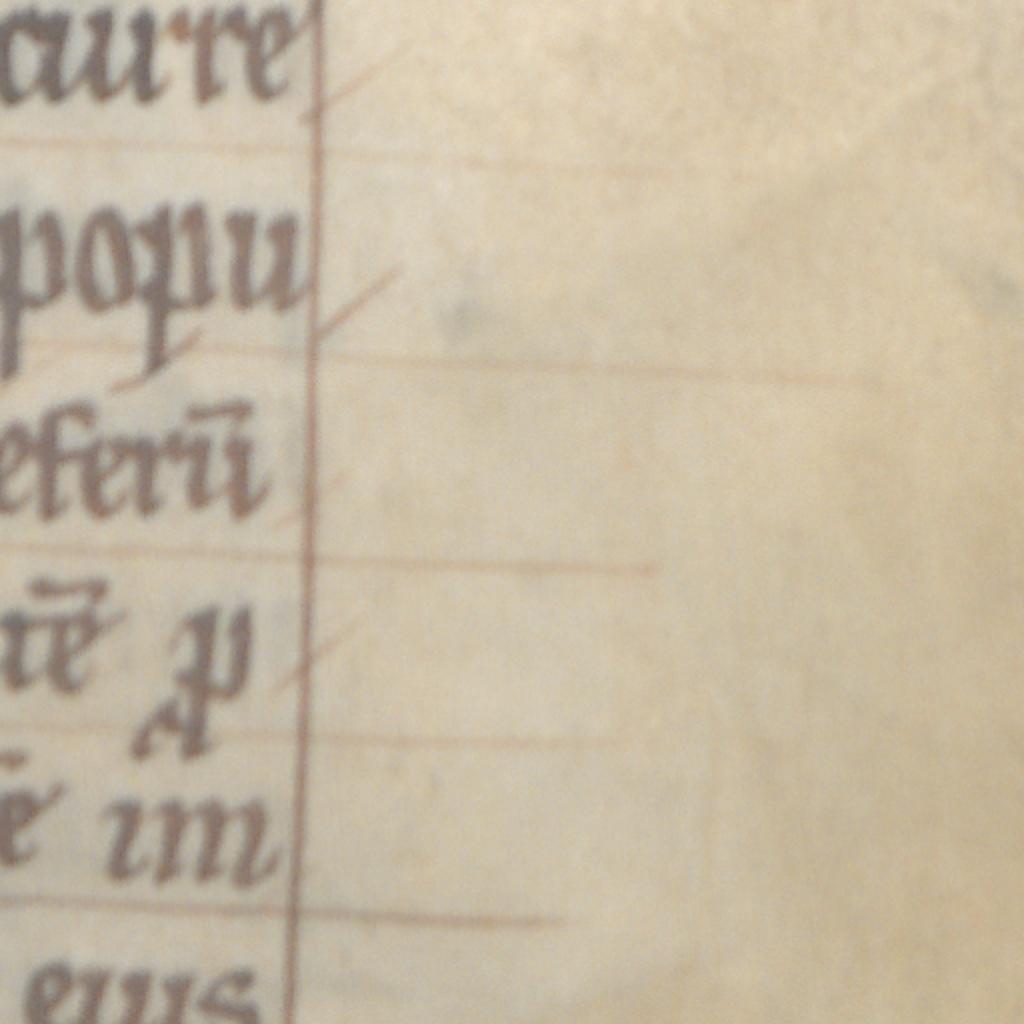 aure
popu
eferū
tē ꝓ
ē im
eius